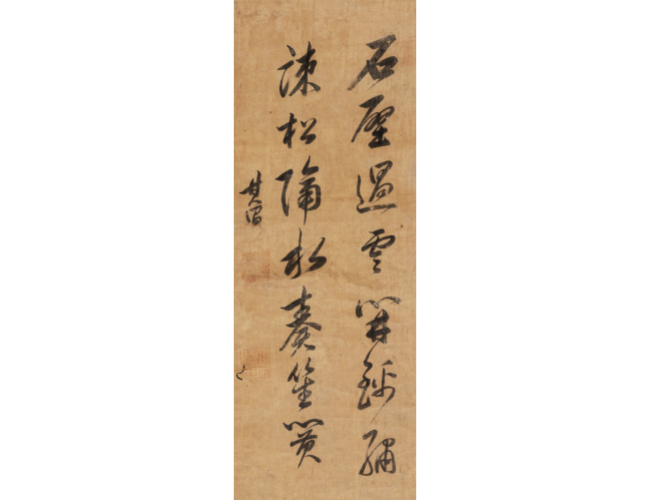 石壁過雲開錦繡
疎松隔水奏笙簧
其昌